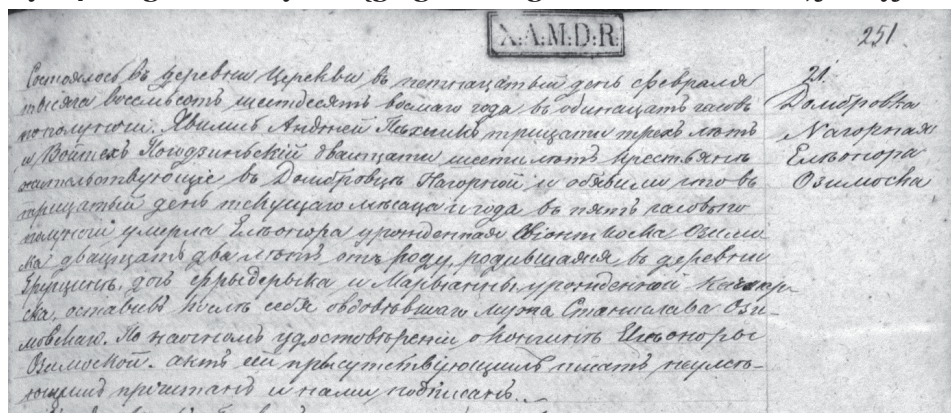 X:A:M:D:R:
251
21.
Домбровка
Нагорная
Ельонора
Озимоска
Состоялось въ деревни Церекви въ петнацатый день февраля
тысяча восемьсотъ шестдесятъ восмаго года въ одинацатъ часовъ
пополуночи. Явились Андрей трицати трехъ лѣтъ
и Войтехъ двацати шести лѣтъ крестьяне
жительствующіе въ Домбровцѣ Нагорной и объявили что въ
трицатый день текущаго мѣсаца и года въ пять часовъ по
полуночи умерла Ельонора урожденная Озимо-
ска двацатъ два лѣтъ отъ роду, родившаяся въ деревни
дочь и Марыанны урожденной
ска, оставивъ послѣ себя овдовѣвшаго мужа Станислава Ози-
мовскаи. По настномъ удостовѣреніи о кончинѣ Ельоноры
Озимоской. актъ сей присутствующимъ писать неумѣ-
ющимъ прочитанъ и нами подписанъ.